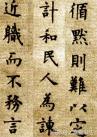 循默則難以
計和民人為諫
近職而不務言